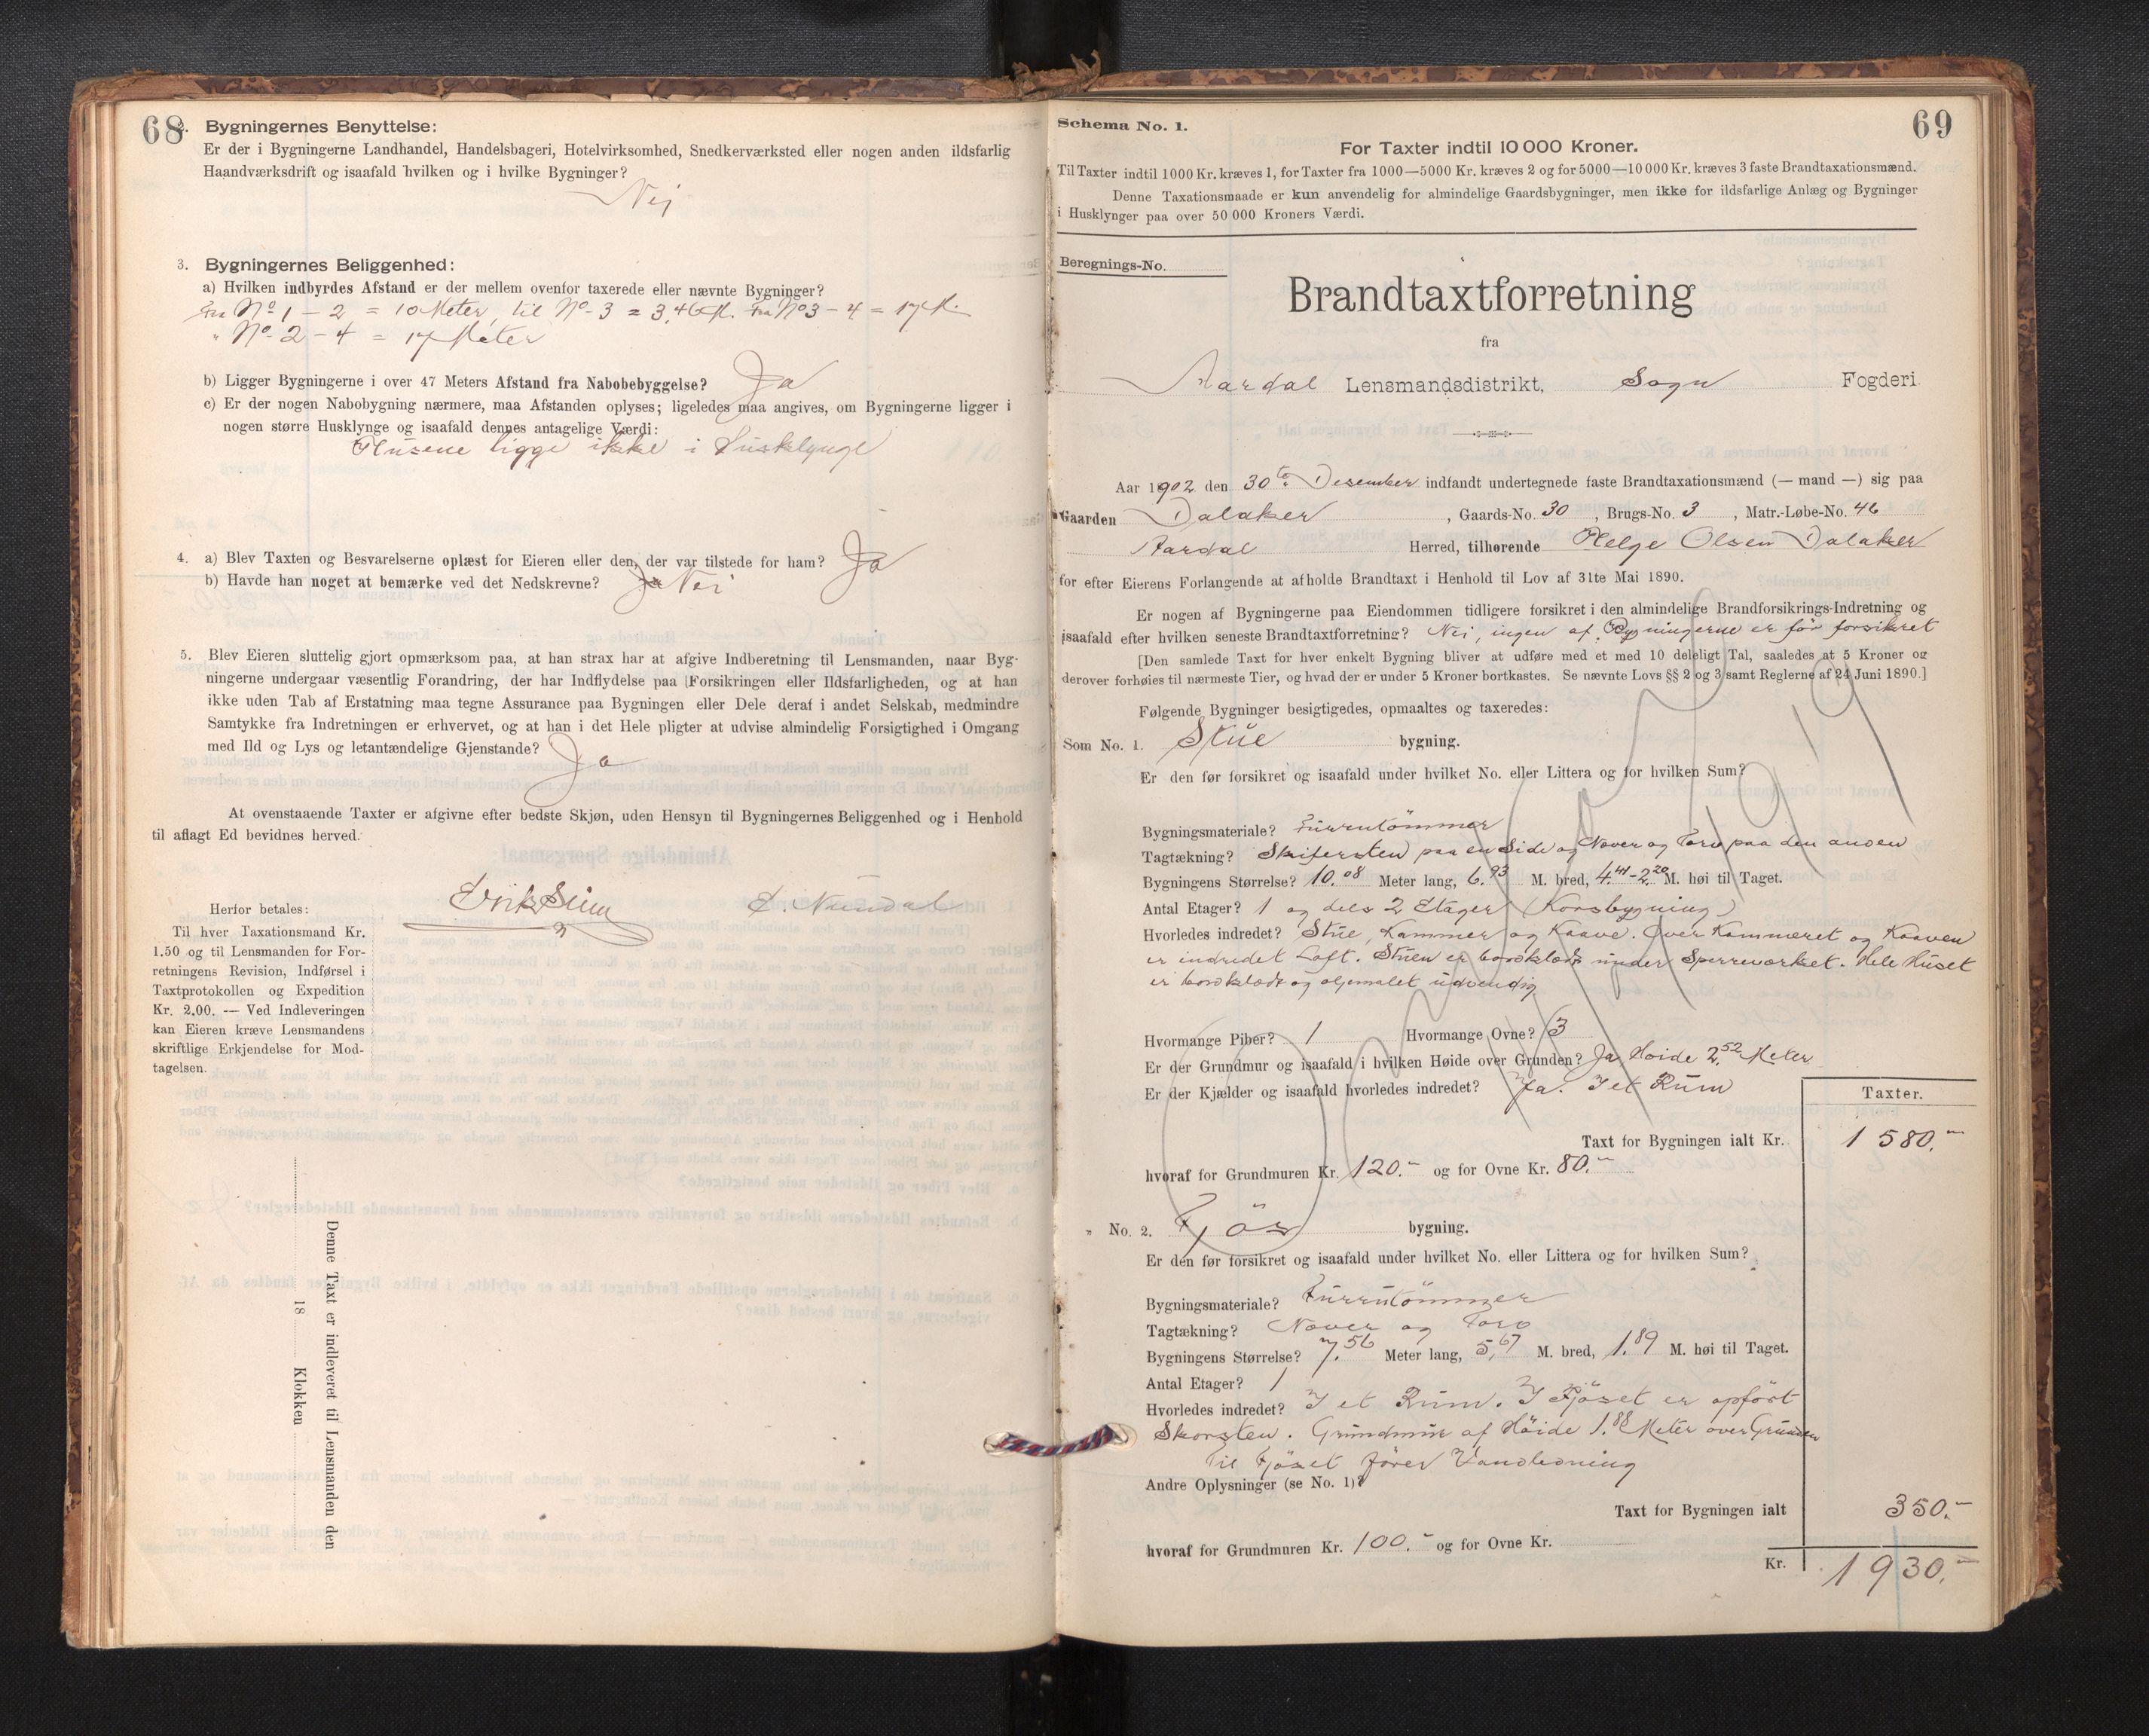 68
2. Bygningernes Benyttelse:
Er der i Bygningerne Landhandel, Handelsbageri, Hotelvirksomhed, Snedkerværksted eller nogen anden ildsfarlig
Haandværksdrift og isaafald hvilken og i hvilke Bygninger?
Nej
3. Bygningernes Beliggenhed:
a) Hvilken indbyrdes Afstand er der mellem ovenfor taxerede eller nævnte Bygninger?
Fra No 1 – 2 = 10 Meter, til No 3 = 3,46 M. Fra No 3 – 4 = 17 M.
" No 2 – 4 = 17 Meter
b) Ligger Bygningerne i over 47 Meters Afstand fra Nabobebyggelse? Ja
c) Er der nogen Nabobygning nærmere, maa Afstanden oplyses; ligeledes maa angives, om Bygningerne ligger i
nogen større Husklynge og isaafald dennes antagelige Værdi:
Husene ligge ikke i Husklynge
4. a) Blev Taxten og Besvarelserne oplæst for Eieren eller den, der var tilstede for ham? Ja
b) Havde han noget at bemærke ved det Nedskrevne? Ja Nei
5. Blev Eieren sluttelig gjort opmærksom paa, at han strax har at afgive Indberetning til Lensmanden, naar Byg-
ningerne undergaar væsentlig Forandring, der har Indflydelse paa Forsikringen eller Ildsfarligheden, og at han
ikke uden Tab af Erstatning maa tegne Assurance paa Bygningen eller Dele deraf i andet Selskab, medmindre
Samtykke fra Indretningen er erhvervet, og at han i det Hele pligter at udvise almindelig Forsigtighed i Omgang
med Ild og Lys og letantændelige Gjenstande? Ja
At ovenstaaende Taxter er afgivne efter bedste Skjøn, uden Hensyn til Bygningernes Beliggenhed og i Henhold
til aflagt Ed bevidnes herved.
Erik Seim L. Nundal
Herfor betales:
Til hver Taxationsmand Kr.
1.50 og til Lensmanden for For-
retningens Revision, Indførsel i
Taxtprotokollen og Expedition
Kr. 2.00. — Ved Indleveringen
kan Eieren kræve Lensmandens
skriftlige Erkjendelse for Mod-
tagelsen.
Denne Taxt er indleveret til Lensmanden den
18 Klokken
69
Schema No. 1.
For Taxter indtil 10 000 Kroner.
Til Taxter indtil 1000 Kr. kræves 1, for Taxter fra 1000—5000 Kr. kræves 2 og for 5000—10 000 Kr. kræves 3 faste Brandtaxationsmænd.
Denne Taxationsmaade er kun anvendelig for almindelige Gaardsbygninger, men ikke for ildsfarlige Anlæg og Bygninger
i Husklynger paa over 50 000 Kroners Værdi.
Beregnings-No.
Brandtaxtforretning
fra
Aardal Lensmandsdistrikt, Sogn Fogderi.
Aar 1902 den 30te Desember indfandt undertegnede faste Brandtaxationsmænd (— mand —) sig paa
Gaarden Dalaker, Gaards-No. 30, Brugs-No. 3, Matr.-Løbe-No. 46
Aardal Herred, tilhørende Helge Olsen Dalaker
for efter Eierens Forlangende at afholde Brandtaxt i Henhold til Lov af 31te Mai 1890.
Er nogen af Bygningerne paa Eiendommen tidligere forsikret i den almindelige Brandforsikrings-Indretning og
isaafald efter hvilken seneste Brandtaxtforretning? Nei, ingen af Bygningerne er før forsikret
[Den samlede Taxt for hver enkelt Bygning bliver at udføre med et med 10 deleligt Tal, saaledes at 5 Kroner og
derover forhøies til nærmeste Tier, og hvad der er under 5 Kroner bortkastes. Se nævnte Lovs §§ 2 og 3 samt Reglerne af 24 Juni 1890.]
Følgende Bygninger besigtigedes, opmaaltes og taxeredes:
Som No. 1. Stue bygning.
Er den før forsikret og isaafald under hvilket No. eller Littera og for hvilken Sum?
Bygningsmateriale? Furrutømmer
Tagtækning? Skifersten paa en Side og Never og Torv paa den anden
Bygningens Størrelse? 10.08 Meter lang, 6.93 M. bred, 4.41-2.20 M. høi til Taget.
Antal Etager? 1 og dels 2 Etager (Korsbygning)
Hvorledes indredet? Stue, Kammer og Kaave. Over Kammeret og Kaaven
er indredet Loft. Stuen er bordklædt under Sperreværket. Hele Huset
er bordklædt og oljemalet udvendig
Hvormange Piber? 1 Hvormange Ovne? 3
Er der Grundmur og isaafald i hvilken Høide over Grunden? Ja, Høide 2.52 Meter
Er der Kjælder og isaafald hvorledes indredet? Ja. I et Rum
Taxter.
Taxt for Bygningen ialt Kr. 1 580.-
hvoraf for Grundmuren Kr. 120.- og for Ovne Kr. 80.-
" No. 2. Fjøs bygning.
Er den før forsikret og isaafald under hvilket No. eller Littera og for hvilken Sum?
Bygningsmateriale? Furrutømmer
Tagtækning? Never og Torv
Bygningens Størrelse? 7.56 Meter lang, 5.67 M. bred, 1.89 M. høi til Taget.
Antal Etager? 1
Hvorledes indredet? I et Rum. I Fjøset er opført
Skorsten. Grundmur af Høide 1.88 Meter over Grunden
Til Fjøset fører Vandledning
Andre Oplysninger (se No. 1)?
Taxt for Bygningen ialt 350.-
hvoraf for Grundmuren Kr. 100.- og for Ovne Kr.
Kr. 1930.-